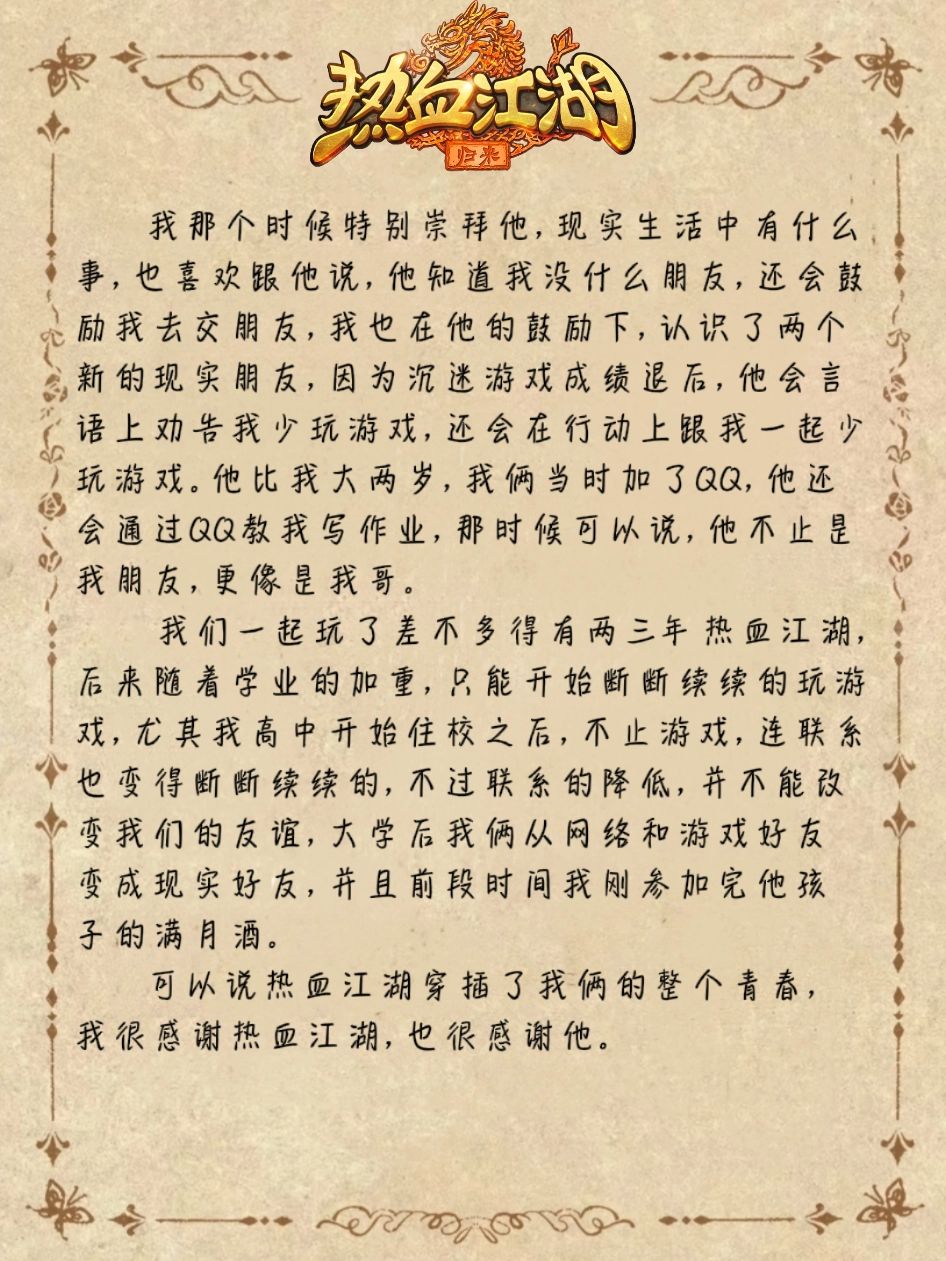 热血江湖
归来
我那个时候特别崇拜他,现实生活中有什么
事,也喜欢跟他说,他知道我没什么朋友,还会鼓
励我去交朋友,我也在他的鼓励下,认识了两个
新的现实朋友,因为沉迷游戏成绩退后,他会言
语上劝告我少玩游戏,还会在行动上跟我一起少
玩游戏。他比我大两岁,我俩当时加了QQ,他还
会通过QQ教我写作业,那时候可以说,他不止是
我朋友,更像是我哥。
我们一起玩了差不多得有两三年热血江湖,
后来随着学业的加重,只能开始断断续续的玩游
戏,尤其我高中开始住校之后,不止游戏,连联系
也变得断断续续的,不过联系的降低,并不能改
变我们的友谊,大学后我俩从网络和游戏好友
变成现实好友,并且前段时间我刚参加完他孩
子的满月酒。
可以说热血江湖穿插了我俩的整个青春,
我很感谢热血江湖,也很感谢他。